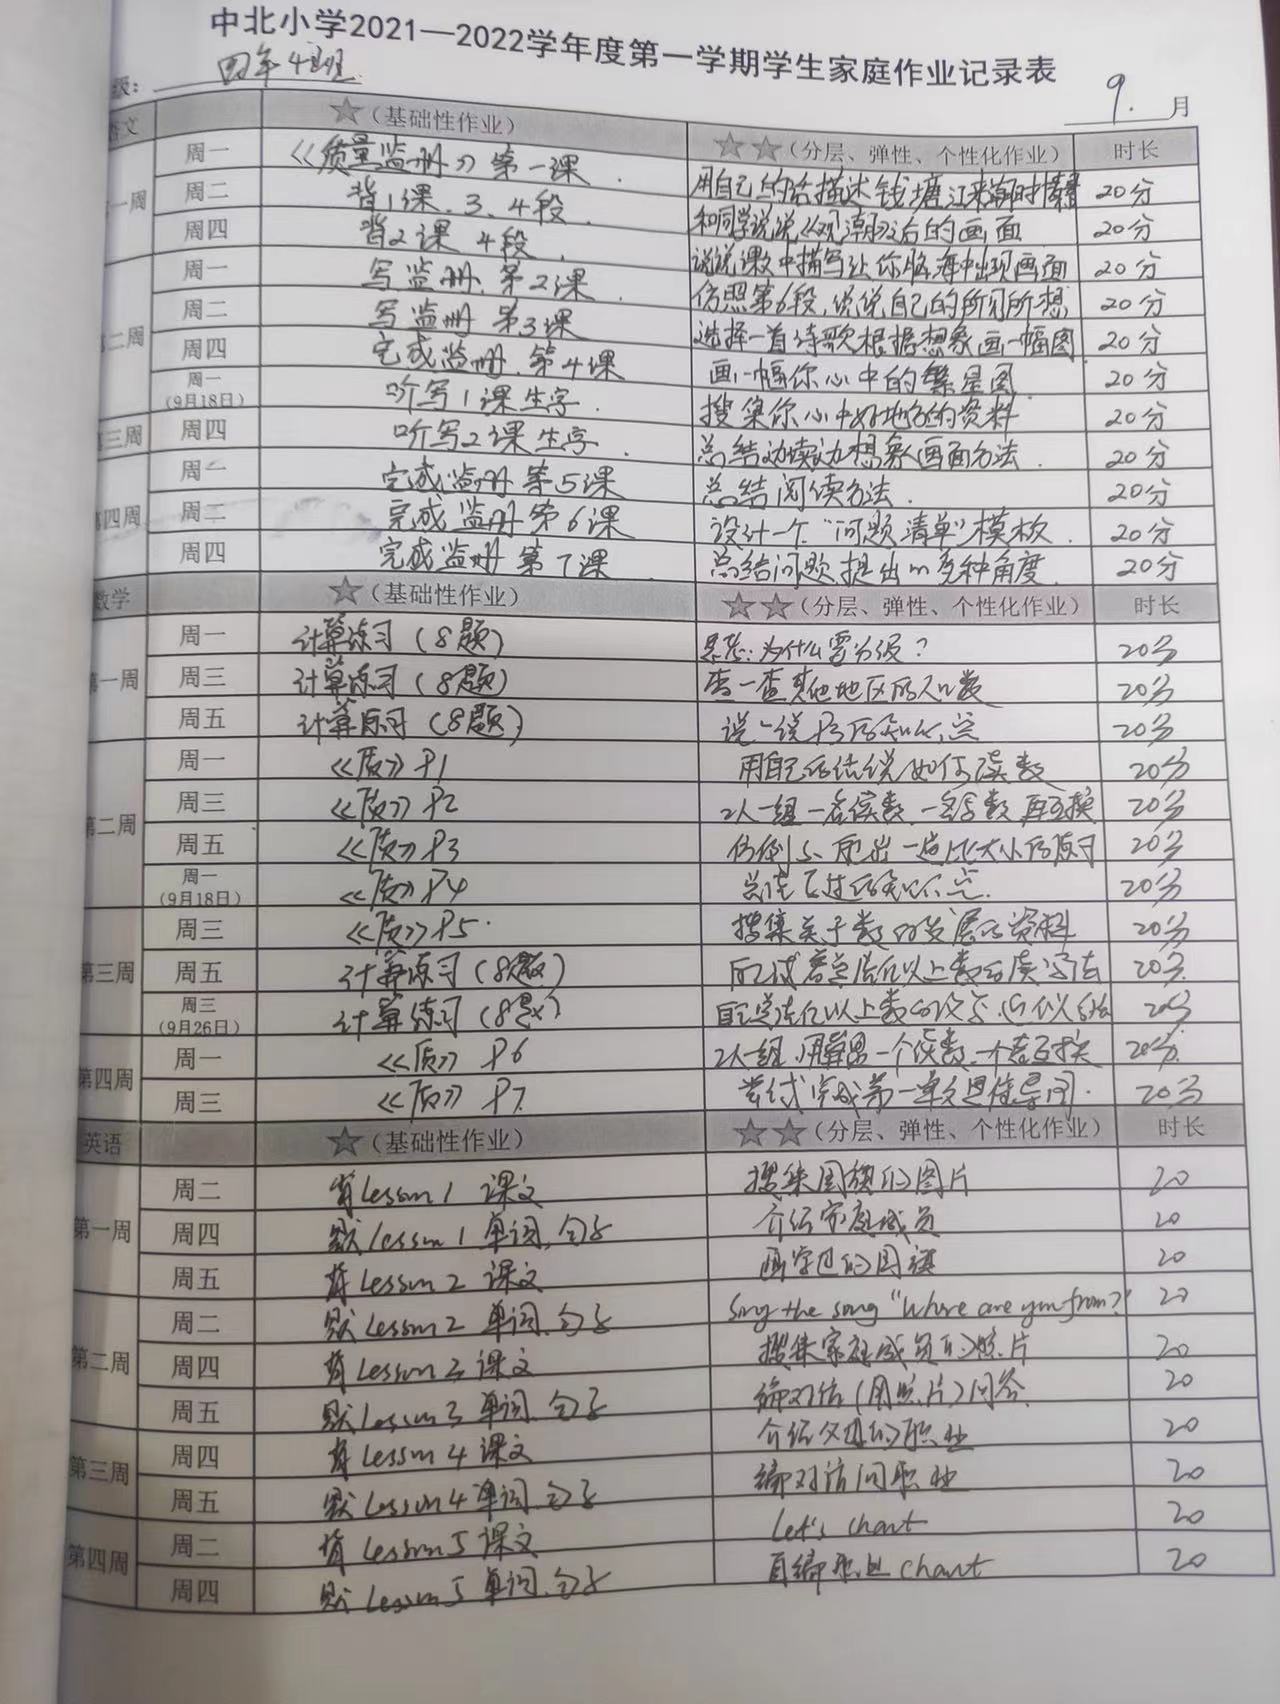 中北小学2021—2022学年度第一学期学生家庭作业记录表
级: 四年4班 9. 月
语文 ★(基础性作业) ★★(分层、弹性、个性化作业) 时长
一周 周一 《质量监册》第一课. 用自己的话描述钱塘江来潮时情景 20分
周二 背1课.3、4段. 和同学说说《观潮》后的画面 20分
周四 背2课 4段. 说说课文中描写让你脑海中出现画面 20分
二周 周一 写监册.第2课. 仿照第6段,说说自己的所见所想 20分
周二 写监册 第3课 选择一首诗歌根据想象画一幅图 20分
周四 完成监册.第4课 画一幅你心中的繁星图 20分
周一(9月18日) 听写1课生字. 搜集你心中好地方的资料 20分
三周 周四 听写2课生字. 总结边读边想象画面方法. 20分
四周 周一 完成监册第5课 总结阅读方法. 20分
周二 完成监册第6课 设计一个"问题清单"模板. 20分
周四 完成监册 第7课. 总结问题提出的多种角度. 20分
数学 ★(基础性作业) ★★(分层、弹性、个性化作业) 时长
第一周 周一 计算练习(8题) 思考:为什么要分级? 20分
周三 计算练习(8题) 查一查其他地区的人口数 20分
周五 计算练习(8题) 说一说P3的知识点 20分
第二周 周一 《质》P1 用自己的话说如何读数 20分
周三 《质》P2 2人一组一名读数.一名写数 再互换 20分
周五 《质》P3 仿例5、再出一道比大小的练习 20分
周一(9月18日) 《质》P4 20分
第三周 周三 《质》P5. 搜集关于数的发展的资料 20分
周五 计算练习(8题) 20分
周三(9月26日) 计算练习(8题) 20分
第四周 周一 《质》P6 2人一组.用算盘一个读数.一个 互换 20分.
周三 《质》P7. 尝试完成第一单元思维导图. 20分
英语 ★(基础性作业) ★★(分层、弹性、个性化作业) 时长
第一周 周二 背Lesson1 课文 搜集国旗的图片 20
周四 默Lesson1 单词.句子 介绍家庭成员 20
周五 背Lesson2 课文 画 的国旗 20
第二周 周二 默Lesson2 单词.句子 Sing the song "Where are you from?" 20
周四 背Lesson3课文 搜集家庭成员的照片 20
周五 默Lesson3单词.句子 编对话(用照片)问答. 20
第三周 周四 背Lesson4课文 介绍父母的职业 20
周五 默Lesson4单词.句子 编对话问职业 20
第四周 周二 背Lesson5课文 Let's chant 20
周四 默Lesson5单词.句子 自编职业chant 20